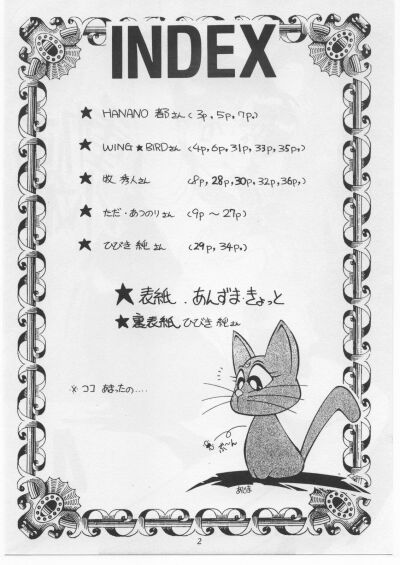 INDEX
★ HANANO 都さん (3p, 5p, 7p.)
★ WING★BIRDさん (4p, 6p, 31p, 33p, 35p.)
★ 牧 秀人さん (8p, 28p, 30p, 32p, 36p.)
★ ただ・あつのりさん (9p 〜 27p)
★ ひびき 純さん (29p, 34p.)
★ 表紙.あんずま・きょっと
★ 裏表紙 ひびき 純さん
※ ココ あまったの....
2